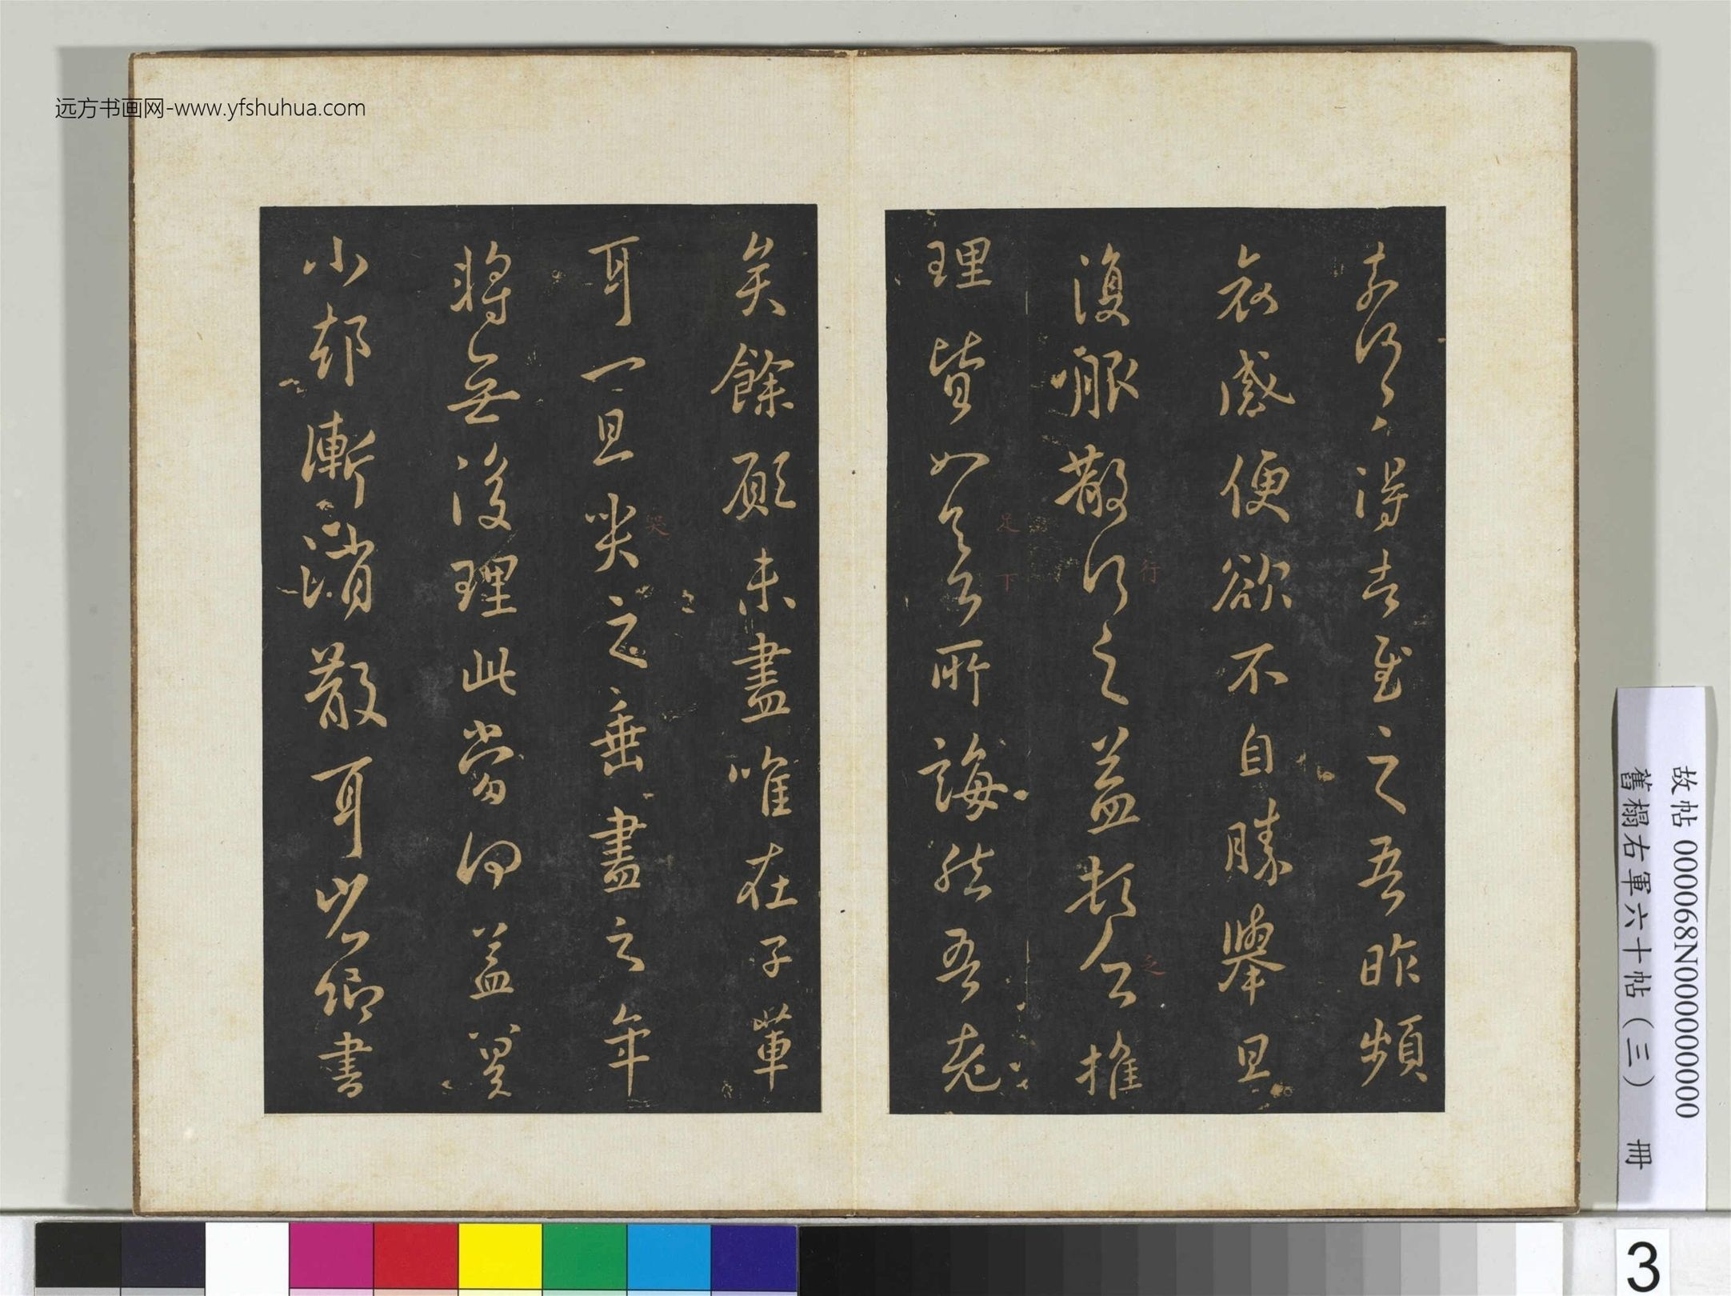 远方书画网-www.yfshuhua.com
得告慰之吾昨頻
哀感便欲不自勝舉旦
行
乏
復服散行之益頓乏推
足下
理皆如足下所誨然吾老
矣餘願未盡唯在子輩
哭
耳一旦哭之垂盡之年
將無復理此當何益冀
小却漸消散耳省卿書
故帖 000068N000000000
舊榻右軍六十帖（三） 冊
3